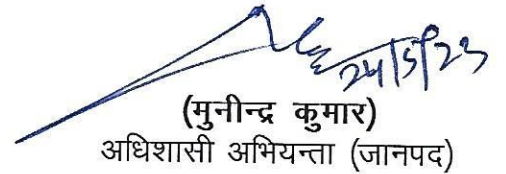 24/5/23
(मुनीन्द्र कुमार)
अधिशासी अभियन्ता (जानपद)